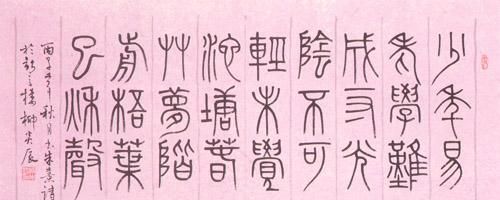 少年易
老學難
成一寸光
陰不可
輕未覺
池塘春
草夢階
前梧葉
已秋聲
丙子年秋月書朱熹詩
於 橋柳炎辰